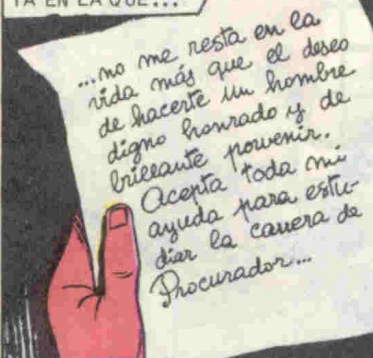 YA EN LA QUE...
...no me resta en la
vida más que el deseo
de hacerte un hombre
digno honrado y de
brillante porvenir.
Acepta toda mi
ayuda para estu-
diar la carrera de
Procurador...